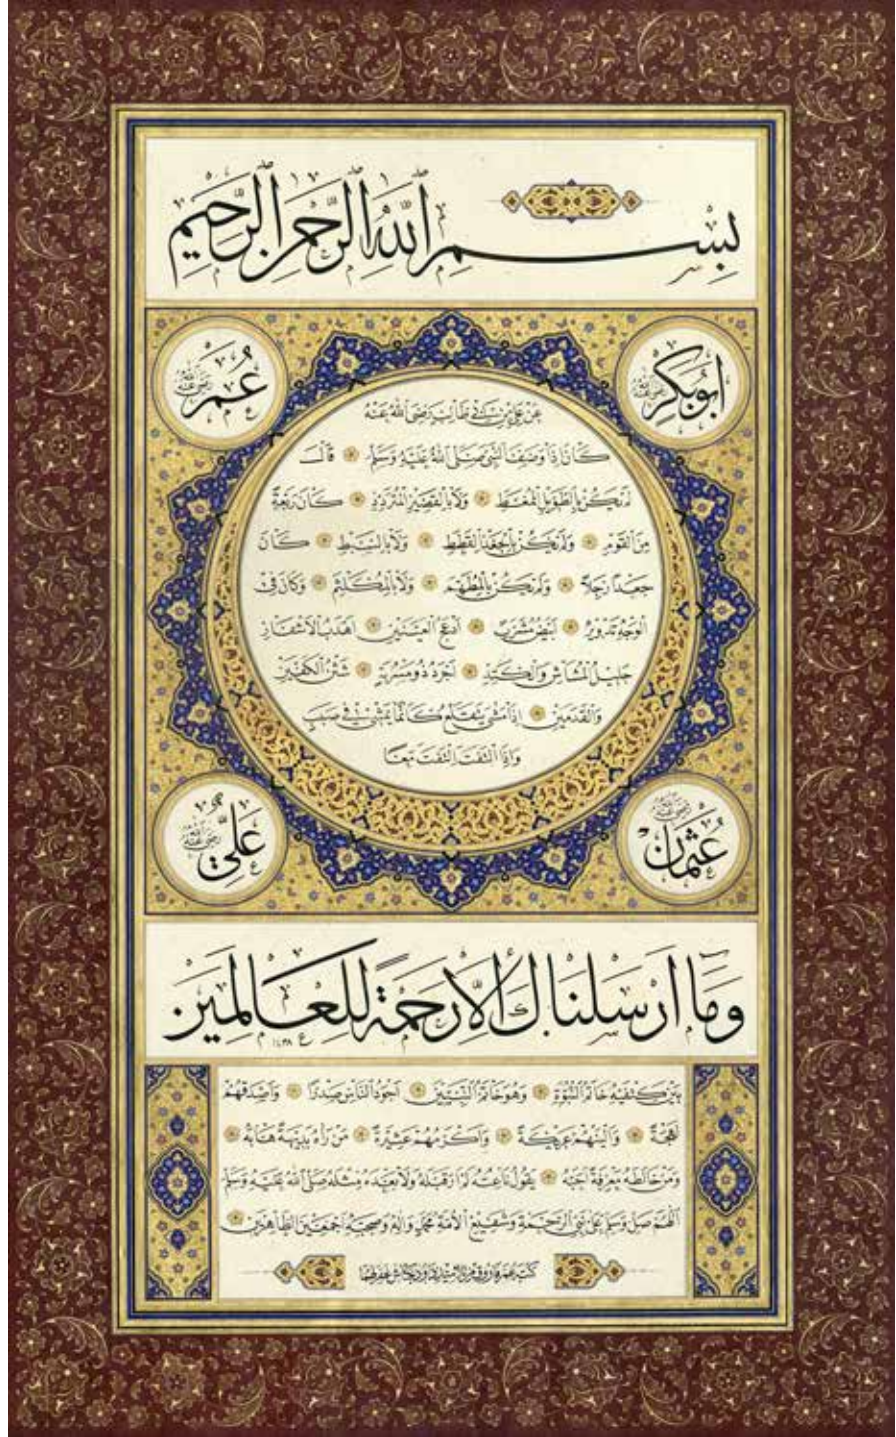 بِسْمِ اللهِ الرَّحْمٰنِ الرَّحِيمِ
ابُو بَكْر رَضِيَ اللهُ عَنْهُ
عُمَر رَضِيَ اللهُ عَنْهُ
عَنْ عَلِيِّ بْنِ اَبِي طَالِبٍ رَضِيَ اللهُ عَنْهُ
كَانَ اِذَا وَصَفَ النَّبِيَّ صَلَّى اللهُ عَلَيْهِ وَسَلَّمَ قَالَ
لَمْ يَكُنْ بِالطَّوِيلِ الْمُمَّغِطِ وَلَا بِالْقَصِيرِ الْمُتَرَدِّدِ كَانَ رَبْعَةً
مِنَ الْقَوْمِ وَلَمْ يَكُنْ بِالْجَعْدِ الْقَطَطِ وَلَا بِالسَّبِطِ كَانَ
جَعْدًا رَجِلًا وَلَمْ يَكُنْ بِالْمُطَهَّمِ وَلَا بِالْمُكَلْثَمِ وَكَانَ فِي
الْوَجْهِ تَدْوِيرٌ اَبْيَضُ مُشْرَبٌ اَدْعَجُ الْعَيْنَيْنِ اَهْدَبُ الْاَشْفَارِ
جَلِيلُ الْمُشَاشِ وَالْكَتَدِ اَجْرَدُ ذُو مَسْرُبَةٍ شَثْنُ الْكَفَّيْنِ
وَالْقَدَمَيْنِ اِذَا مَشَى يَتَقَلَّعُ كَاَنَّمَا يَمْشِي فِي صَبَبٍ
وَاِذَا الْتَفَتَ الْتَفَتَ مَعًا
عُثْمَان رَضِيَ اللهُ عَنْهُ
عَلِيّ رَضِيَ اللهُ عَنْهُ
وَمَٓا اَرْسَلْنَاكَ اِلَّا رَحْمَةً لِلْعَالَمِينَ
١٤٣٨
بَيْنَ كَتِفَيْهِ خَاتَمُ النُّبُوَّةِ وَهُوَ خَاتَمُ النَّبِيِّينَ اَجْوَدُ النَّاسِ صَدْرًا وَاَصْدَقُهُمْ
لَهْجَةً وَاَلْيَنُهُمْ عَرِيكَةً وَاَكْرَمُهُمْ عَشِيرَةً مَنْ رَاٰهُ بَدِيهَةً هَابَهُ
وَمَنْ خَالَطَهُ مَعْرِفَةً اَحَبَّهُ يَقُولُ نَاعِتُهُ لَمْ اَرَ قَبْلَهُ وَلَا بَعْدَهُ مِثْلَهُ صَلَّى اللهُ عَلَيْهِ وَسَلَّمَ
اَللّٰهُمَّ صَلِّ وَسَلِّمْ عَلَى نَبِيِّ الرَّحْمَةِ وَشَفِيعِ الْاُمَّةِ مُحَمَّدٍ وَاٰلِهِ وَصَحْبِهِ اَجْمَعِينَ الطَّاهِرِينَ
كتبه عمر فاروق